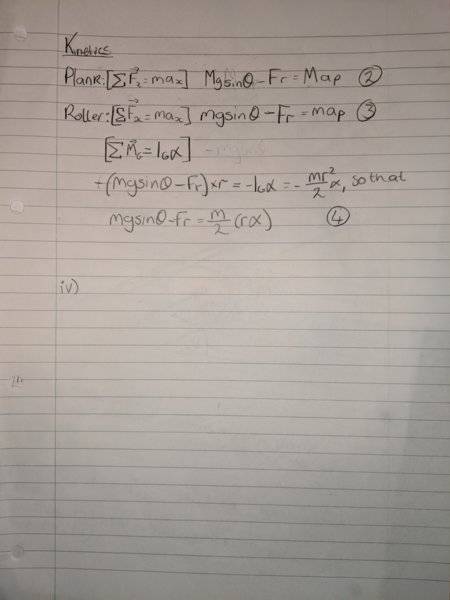 Kinetics
Plank: [ΣF⃗ₓ = maₓ] Mgsinθ - Fr = Map ②
Roller: [ΣF⃗ₓ = maₓ] mgsinθ - Fr = map ③
[ΣM⃗G = IGα]
+(mgsinθ - Fr) × r = -IGα = - mr²/2 α, so that
mgsinθ - Fr = m/2 (rα) ④
iv)